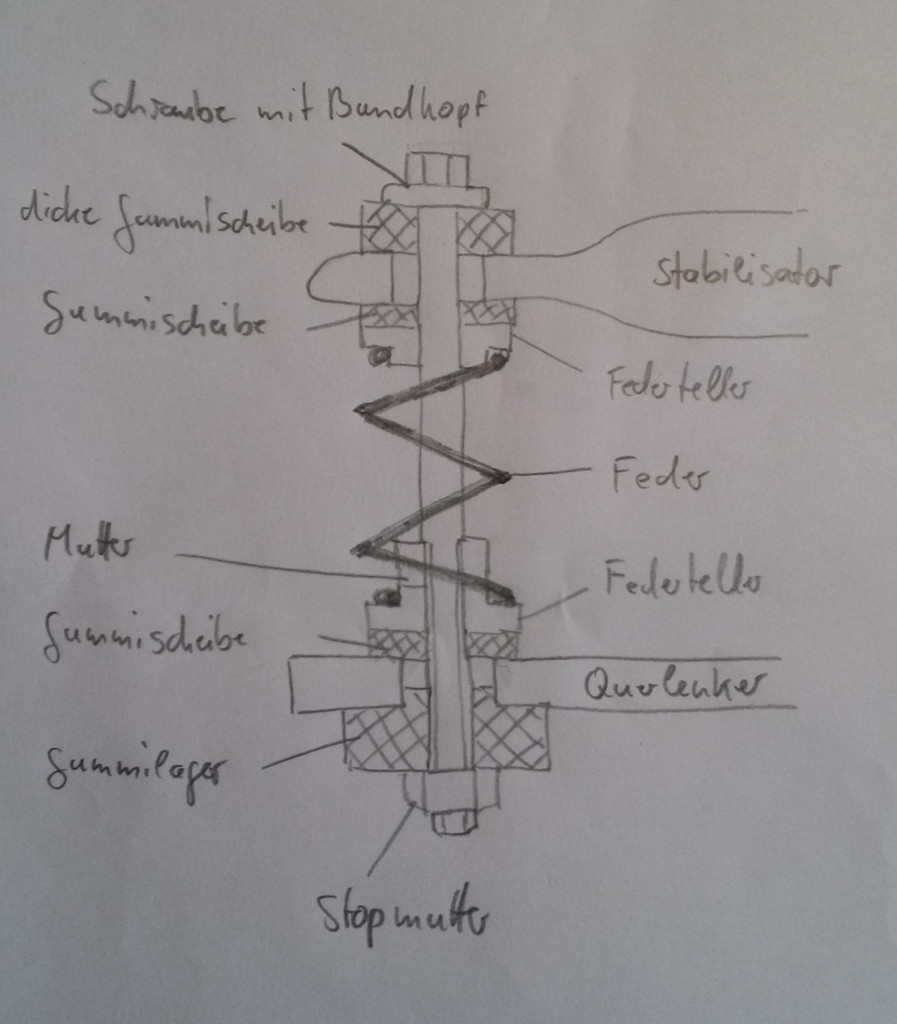 Schraube mit Bundkopf
dicke Gummischeibe
Stabilisator
Gummischeibe
Federteller
Feder
Mutter
Federteller
Gummischeibe
Querlenker
Gummilager
Stopmutter